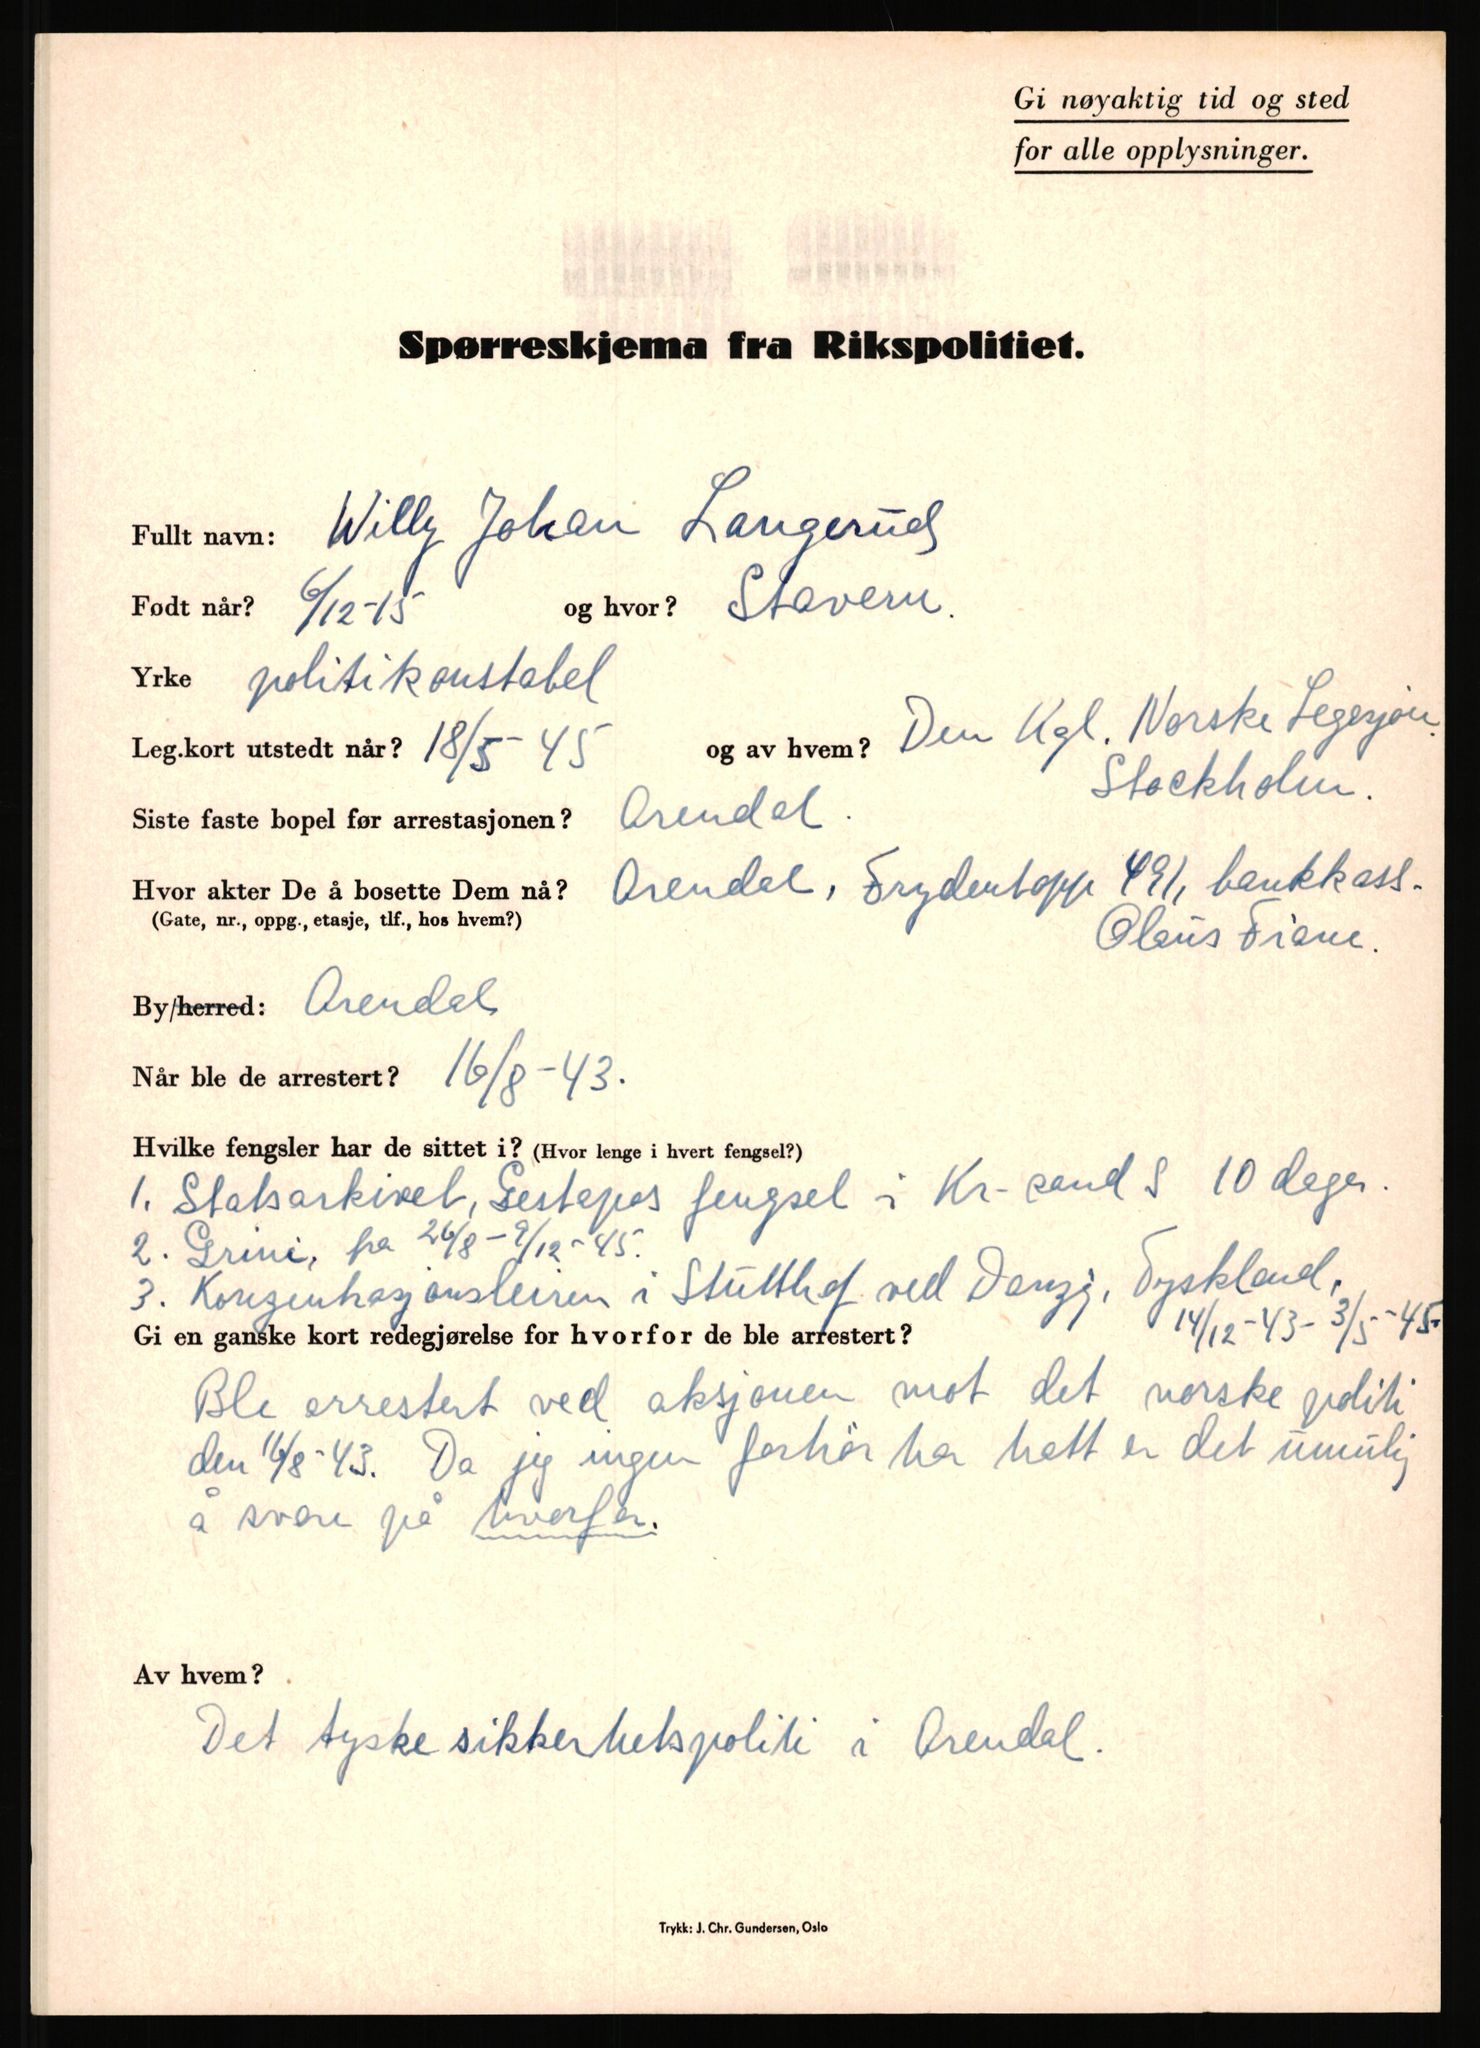 Gi nøyaktig tid og sted
for alle opplysninger.
Spørreskjema fra Rikspolitiet.
Fullt navn: Willy Johan Langerud
Født når? 6/12-15 og hvor? Stavern.
Yrke politikonstabel
Leg.kort utstedt når? 18/5-45 og av hvem? Den Kgl. Norske Legasjon.
Stockholm.
Siste faste bopel før arrestasjonen? Arendal.
Hvor akter De å bosette Dem nå? Arendal, Frydentopp 491, bankkass.
(Gate, nr., oppg., etasje, tlf., hos hvem?)
Olaus Fiane.
By/herred: Arendal
Når ble de arrestert? 16/8-43.
Hvilke fengsler har de sittet i? (Hvor lenge i hvert fengsel?)
1. Statsarkivet, Gestapos fengsel i Kr-sand S 10 dager.
2. Grini, fra 26/8-9/12-45.
3. Konzentrasjonsleiren i Stutthof ved Danzig, Tyskland,
14/12-43- 3/5-45
Gi en ganske kort redegjørelse for hvorfor de ble arrestert?
Ble arrestert ved aksjonen mot det norske politi
den 16/8-43. Da jeg ingen forhör har hatt er det umulig
å svare på hvorfor.
Av hvem?
Det tyske sikkerhetspoliti i Arendal.
Trykk: J. Chr. Gundersen, Oslo